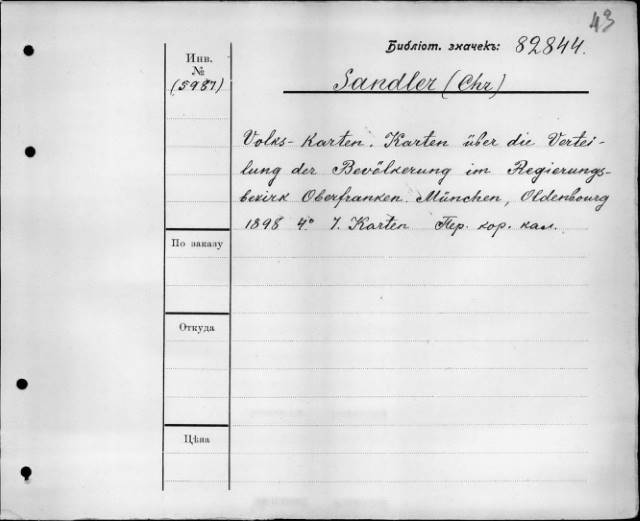 43
Библіот. значекъ: 82844.
Инв.
№
(5987)
Sandler (Chr)
Volks-Karten. Karten über die Vertei-
lung der Bevölkerung im Regierungs-
bezirk Oberfranken. München, Oldenbourg
1898 4° 7. Karten Пер. кор. кал.
По заказу
Откуда
Цѣна